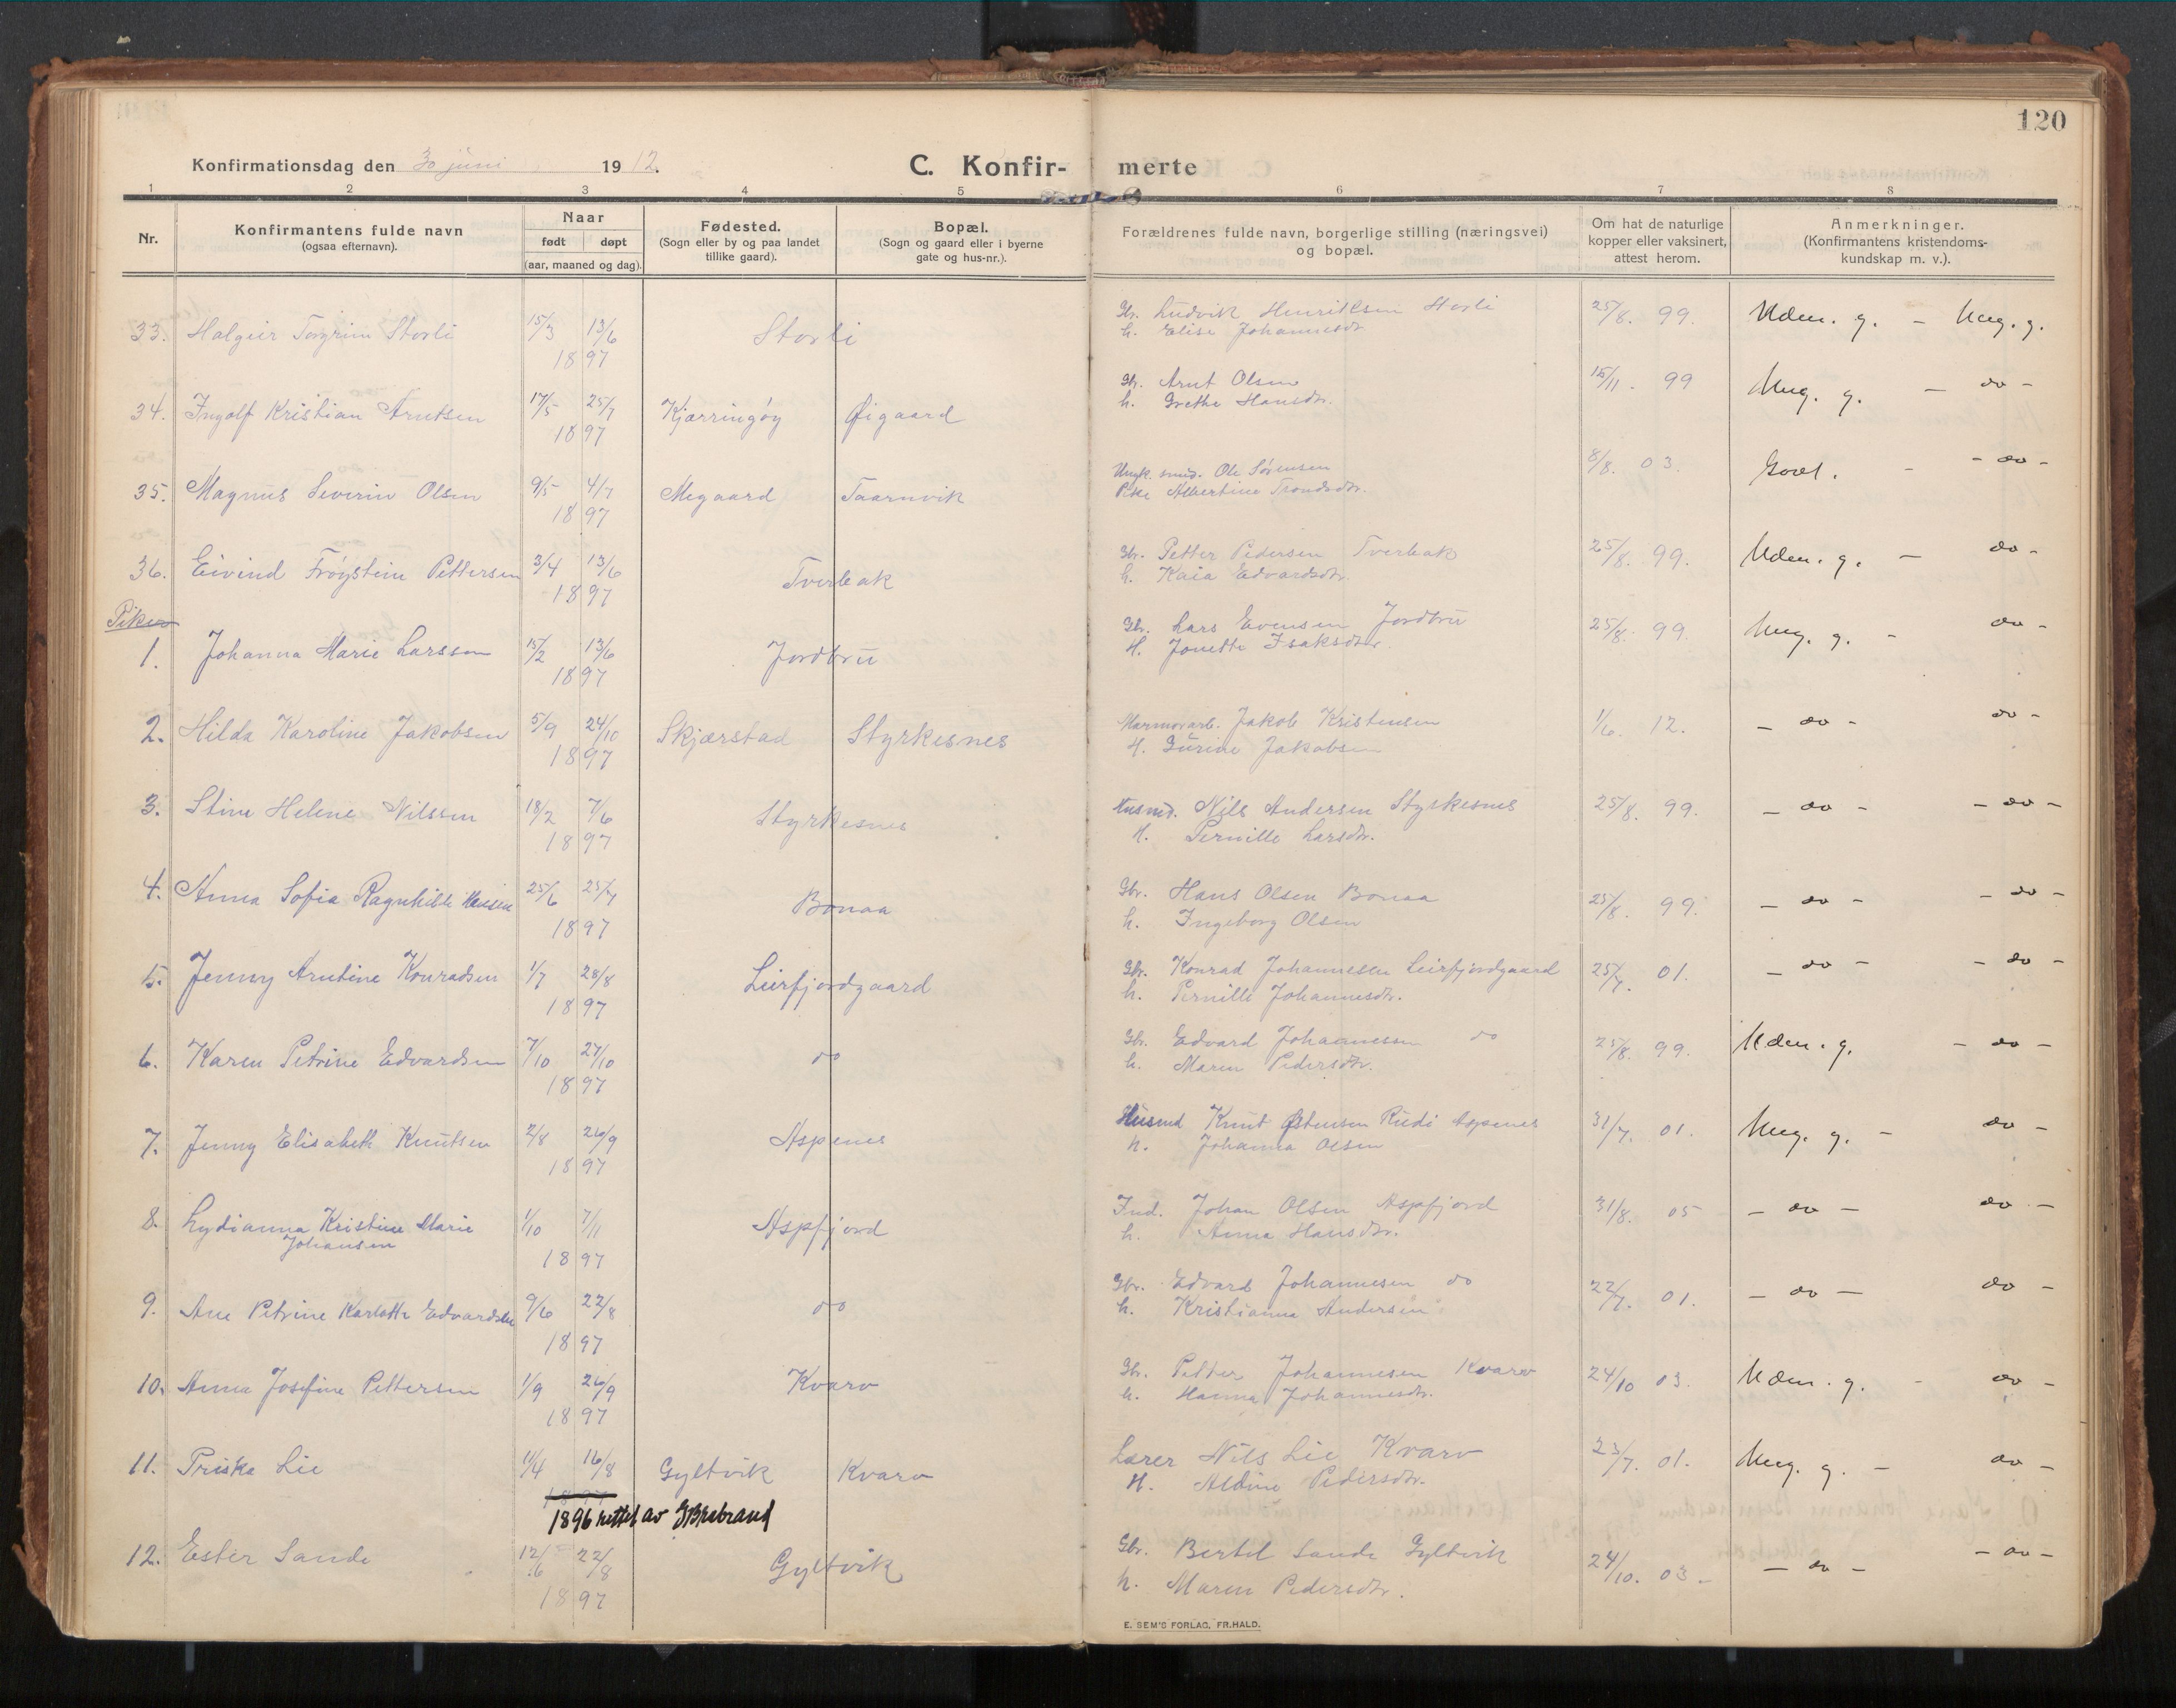 120
Konfirmationsdag den 30 juni 1912.
C. Konfir- merte
1 2 3 4 5 6 7 8
Nr.
Konfirmantens fulde navn
(ogsaa efternavn).
Naar
født døpt
(aar, maaned og dag).
Fødested.
(Sogn eller by og paa landet
tillike gaard).
Bopæl.
(Sogn og gaard eller i byerne
gate og hus-nr.).
Forældrenes fulde navn, borgerlige stilling (næringsvei)
og bopæl.
Om hat de naturlige
kopper eller vaksinert,
attest herom.
Anmerkninger.
(Konfirmantens kristendoms-
kundskap m. v.).
33. Halgeir Torgrim Storli 15/3 13/6 Storli Gbr. Ludvik Henriksen Storli 25/8. 99. Uden. g. – Meg. g.
1897 h. Elise Johannesdtr.
34. Ingolf Kristian Arntsen 17/5 25/7 Kjærringøy Øigaard Gbr. Arnt Olsen 15/11. 99 Meg. g. – do –
1897 h. Grethe Hansdtr.
35. Magnus Severin Olsen 9/5 4/7 Megaard Taarnvik Ungk. Ole Sørensen 8/8. 03. Godt. – do –
1897 Pike Albertine Trondsdtr.
36. Eivind Frøystein Pettersen 3/4 13/6 Tverbak Gbr. Petter Pedersen Tverbak 25/8. 99. Uden. g. – do –
1897 h. Kaia Edvardsdtr.
Piker
1. Johanna Marie Larssen 15/2 13/6 Jordbru Gbr. Lars Evensen Jordbru 25/8. 99. Meg. g. – do –
1897 H. Jonette Isaksdtr.
2. Hilda Karoline Jakobsen 5/9 24/10 Skjærstad Styrkesnes Marmorarb. Jakob Kristensen 1/6. 12. – do – do –
1897 H. Gurine Jakobsen
3. Stine Helene Nilssen 18/2 7/6 Styrkesnes Husmd. Nils Andersen Styrkesnes 25/8. 99. – do – – do –
1897 H. Pernille Larsdtr.
4. Anna Sofia Ragnhilde Hansen 25/6 25/7 Bonaa Gbr. Hans Olsen Bonaa 25/8. 99. – do – – do –
1897 h. Ingeborg Olsen
5. Jenny Arntine Konradsen 1/7 28/8 Leirfjordgaard Gbr. Konrad Johannesen Leirfjordgaard 25/7. 01. – do – – do –
1897 h. Pernille Johannesdtr.
6. Karen Petrine Edvardsen 7/10 27/10 do Gbr. Edvard Johannesen do 25/8. 99. Uden. g. – do –
1897 h. Maren Pedersdtr.
7. Jenny Elisabeth Knutsen 2/8 26/9 Aspenes Husmd Knut Østensen Rudi Aspenes 31/7. 01. Meg. g. – do –
1897 h. Johanna Olsen
8. Lydianna Kristine Marie 1/10 7/11 Aspfjord Ind. Johan Olsen Aspfjord 31/8. 05 – do – do –
Johansen 1897 h. Anna Hansdtr.
9. Ane Petrine Karlotte Edvardsen 9/6 22/8 do Gbr. Edvard Johannesen do 22/7. 01. – do – do –
1897 h. Kristianna Andersen
10. Anna Josefine Pettersen 1/9 26/9 Kvarv Gbr. Petter Johannesen Kvarv 24/10 03. Uden. g. – do –
1897 h. Hanna Johannesdtr.
11. Priska Lie 1/4 16/8 Gyltvik Kvarv Lærer Nils Lie Kvarv 23/7. 01. Meg. g. – do –
1897 H. Aldine Pedersdtr.
1896 rettet av
12. Ester Sande 12/6 22/8 Gyltvik Gbr. Bertel Sande Gyltvik 24/10. 03 – – do – – do –
1897 h. Maren Pedersdtr.
E. SEM'S FORLAG, FR.HALD.